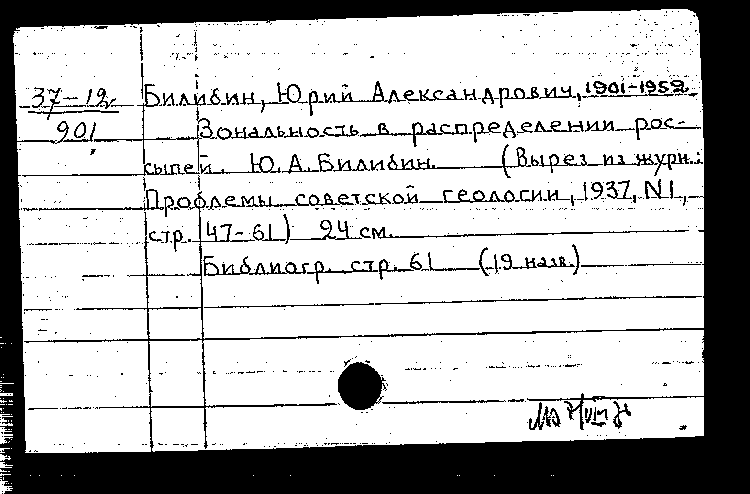 37-12 Билибин, Юрий Александрович, 1901-1952
901 Зональность в распределении рос-
сыпей. Ю.А. Билибин. (Вырез из журн.:
Проблемы советской геологии, 1937, N1,
стр. 47-61) 24 см.
Библиогр. стр. 61 (19 назв.)